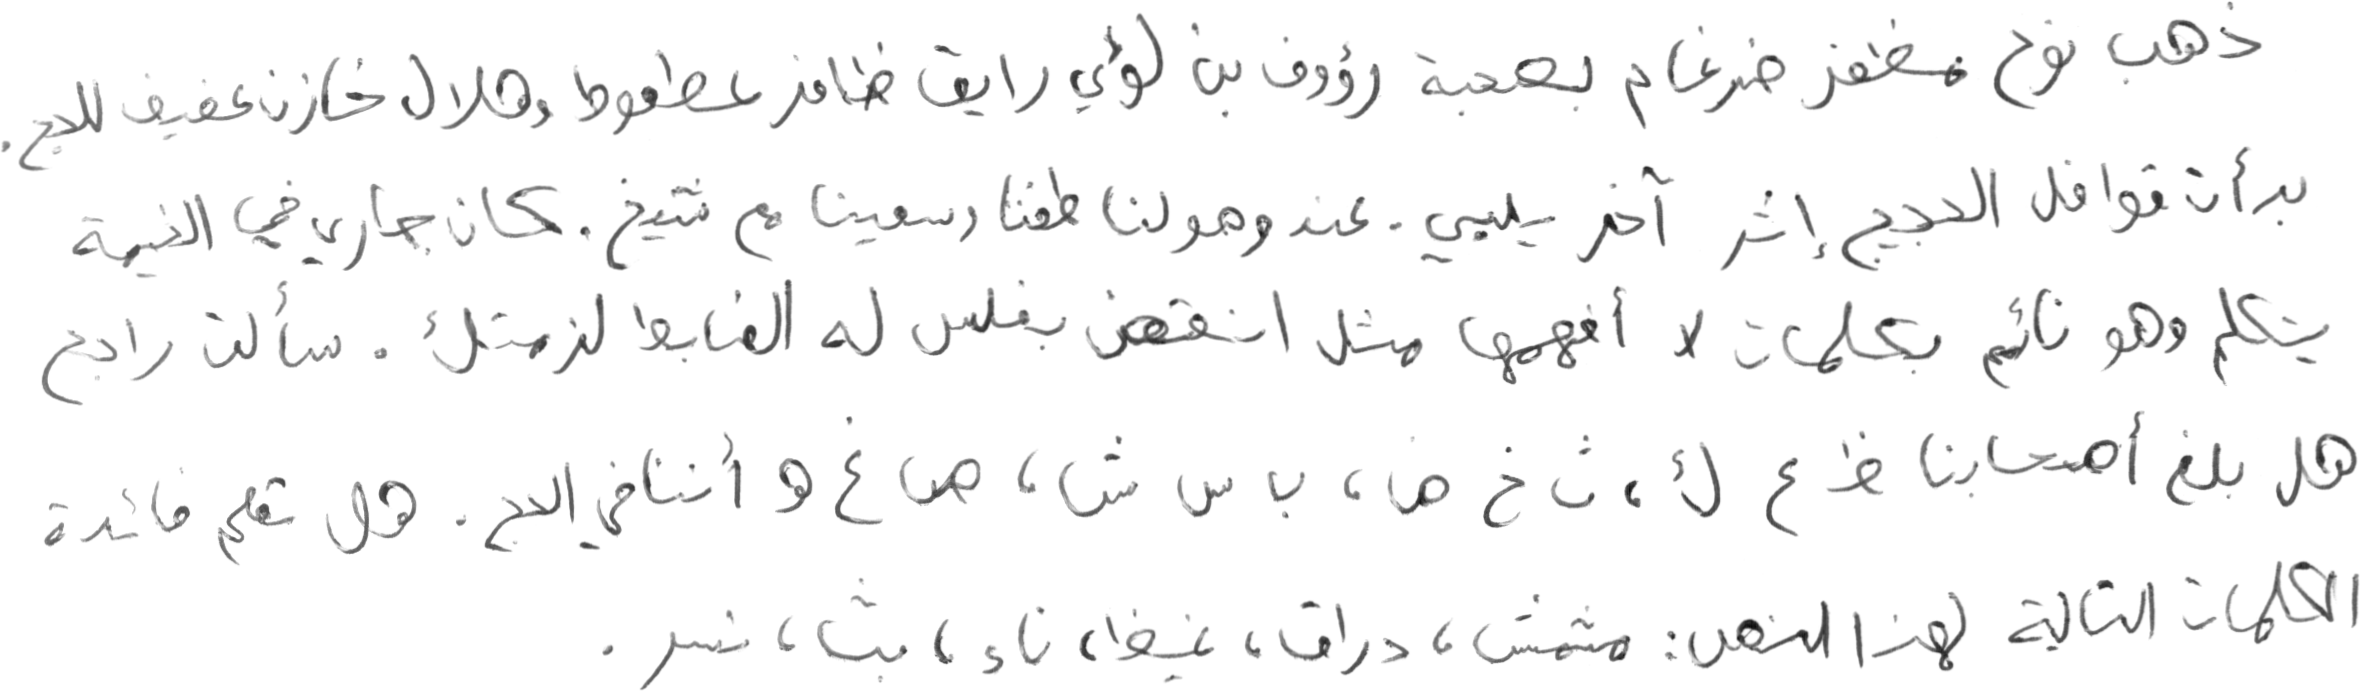 ذهب نوح مظفر ضرغام بصحبة رؤوف بن لؤي رايق ظافر عطعوط وهلال خازن عفيف للحج.
بدأت قوافل الحجيج إثر آخر يلبي. عند وصولنا طفنا وسعينا مع شيخ. كان جاري في الخيمة
يتكلم وهو نائم بكلمات لا أفهمها مثل انتقض بغلس له الضابط لزمتك. سألت راجح
هل بلغ أصحابنا ظ ع ك، ث خ ض، ب س ش، ص غ و أننا في الحج. هل تعلم فائدة
الكلمات التالية لهذا النص: مشمش، دراق، غيظ، ناء، بث، نسر.